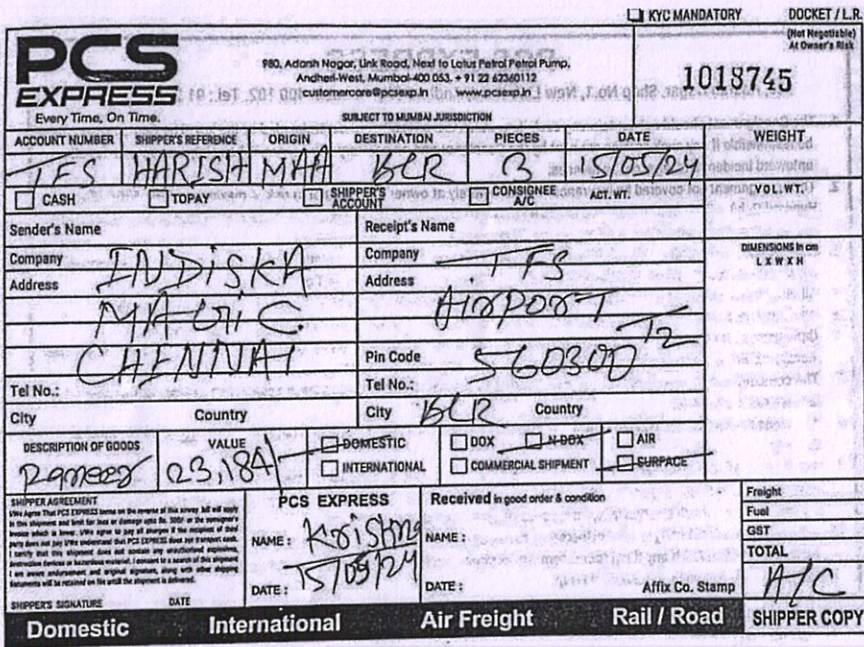 KYC MANDATORY
DOCKET / L.R.
(Not Negotiable)
At Owner's Risk
PCS
EXPRESS
Every Time, On Time.
980, Adarsh Nagar, Link Road, Next to Lotus Petrol Petrol Pump,
Andheri-West, Mumbai-400 053. + 91 22 62360112
customercare@pcsexp.in www.pcsexp.in
SUBJECT TO MUMBAI JURISDICTION
1018745
ACCOUNT NUMBER SHIPPER'S REFERENCE ORIGIN DESTINATION PIECES DATE WEIGHT
TFS HARISH MAA BLR 3 15/05/24
CASH TOPAY SHIPPER'S ACCOUNT CONSIGNEE A/C ACT. WT. VOL. WT.
Sender's Name
Company INDISKA
Address MAGIC
CHENNAI
Tel No.:
City Country
Receipt's Name
Company TFS
Address AIRPORT
T2
Pin Code 560300
Tel No.:
City BLR Country
DIMENSIONS In cm
L X W X H
DESCRIPTION OF GOODS
Paneer
VALUE
23,184
DOMESTIC
INTERNATIONAL
DOX N-DOX AIR
COMMERCIAL SHIPMENT SURFACE
SHIPPER AGREEMENT
SHIPPER'S SIGNATURE DATE
PCS EXPRESS
NAME : Krishna
DATE : 15/05/24
Received in good order & condition
NAME :
DATE :
Affix Co. Stamp
Freight
Fuel
GST
TOTAL
A/C
Domestic International Air Freight Rail / Road SHIPPER COPY